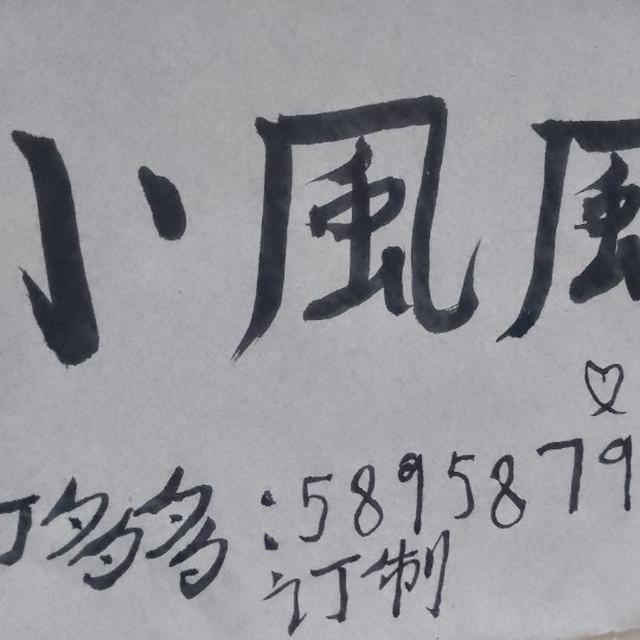 小風風
叮多多:5895879
订制